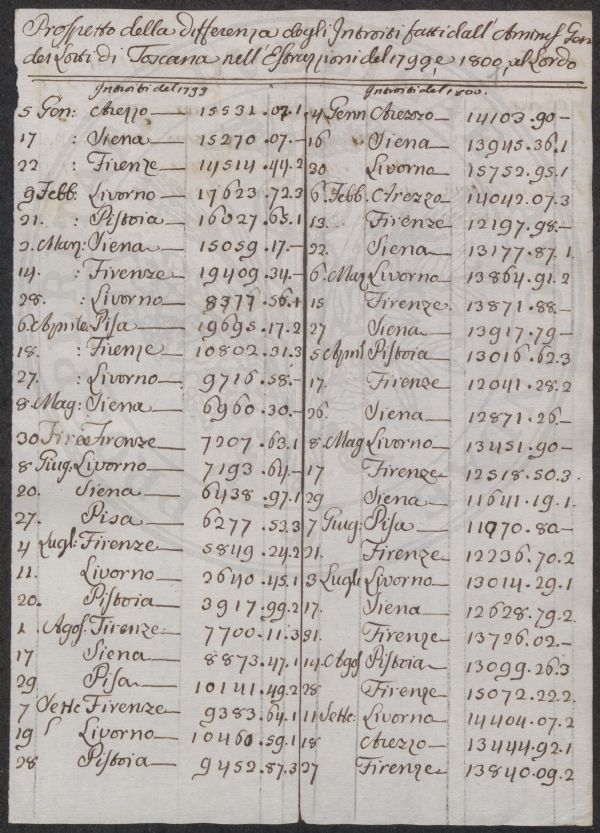 Prospetto della differenza degli Introiti fatti dall' Aminis Gen
dei Lotti di Toscana nell' Estrazzioni del 1799, e 1800, al Lordo
Introiti del 1799
5 Gen: Arezzo 15531.07.1
17 Siena 15270.07.—
22 : Firenze 14514.44.2
9 Febb: Livorno 17623.72.3
21. : Pistoia 16027.65.1
2. Marz: Siena 15059.17.—
14. : Firenze 19409.34.—
28. : Livorno 8377.56.1
6. Aprile Pisa 19695.17.2
18. : Firenze 10802.31.3
27. : Livorno 9716.58.—
8. Mag: Siena 6960.30.—
30 Firenze 7207.63.1
8 Giug: Livorno 7193.64—
20. Siena 6438.97.1
27. Pisa 6277.53.3
4 Lugl: Firenze 5849.24.2
11. Livorno 2640.45.1
20. Pistoia 3917.99.2
1. Agos. Firenze 7700.11.3
17 Siena 8873.47.1
29 Pisa 10141.49.2
7 Sette Firenze 9383.64.1
19 Livorno 10460.59.1
28 Pistoia 9452.87.3
Introiti del 1800.
4 Genn Arezzo 14103.90—
16 Siena 13945.36.1
30 Livorno 15752.95.1
6. Febb. Arezzo 14042.07.3
13. Firenze 12197.98.—
22. Siena 13177.87.1
6. Mag Livorno 13864.91.2
15 Firenze 13871.88.—
27 Siena 13917.79—
5 Apnl Pistoia 13016.62.3
17. Firenze 12041.28.2
26. Siena 12871.26—
8. Mag Livorno 13451.90—
17 Firenze 12518.50.3.
29 Siena 11641.19.1
7 Giug: Pisa 11970.80—
21. Firenze 12236.70.2
3 Lugl: Livorno 13014.29.1
17. Siena 12628.79.2
31. Firenze 13726.02.—
14. Agos Pistoia 13099.26.3
28 Firenze 15072.22.2
11 Sette: Livorno 14404.07.2
18 Arezzo 13444.92.1
27 Firenze 13840.09.2